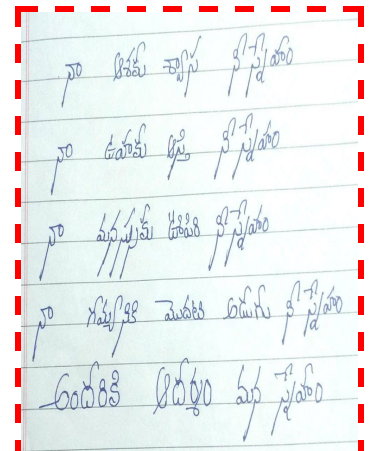 నా ఆశకు శ్వాస నీ స్నేహం
నా ఊహకు ఆస్తి నీ స్నేహం
నా మనస్సుకు ఊపిరి నీ స్నేహం
నా గమ్యానికి మొదటి అడుగు నీ స్నేహం
అందరికి ఆదర్శం మన స్నేహం